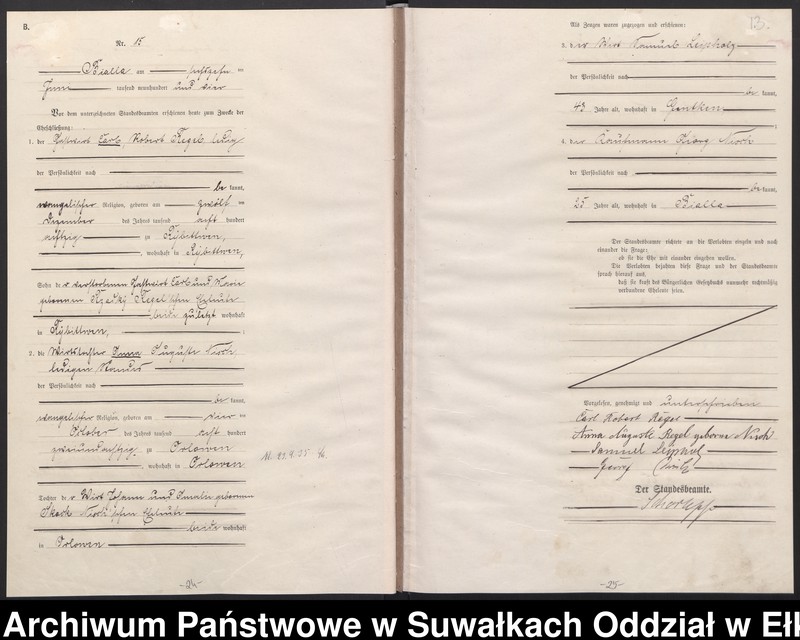 B.
Nr. 15
Bialla am fünfzehn ten
Juni tausend neunhundert und vier
Vor dem unterzeichneten Standesbeamten erschienen heute zum Zwecke der
Eheschließung:
1. der Gastwirt Carl Robert Regel, ledig
der Persönlichkeit nach
be kannt,
evangelischer Religion, geboren am zwölf ten
Dezember des Jahres tausend acht hundert
achtzig zu Rybittwen,
, wohnhaft in Rybittwen,
Sohn de r verstorbenen Gastwirt Carl und Marie
geborenen Regel'schen Eheleute
beide zuletzt wohnhaft
in Rybittwen, ;
2. die Wirtstochter Anna Auguste
ledigen Standes
der Persönlichkeit nach
be kannt,
evangelischer Religion, geboren am vier ten
Oktober des Jahres tausend acht hundert
zweiundachtzig zu Orlowen
, wohnhaft in Orlowen
Tochter de r Wirt Johann und Amalie geborenen
Skock Eheleute
beide wohnhaft
in Orlowen
-24-
13.
Als Zeugen waren zugezogen und erschienen:
3. der Wirt Samuel Leipholz
der Persönlichkeit nach
be kannt,
43 Jahre alt, wohnhaft in Gentken
;
4. der Kaufmann Georg
der Persönlichkeit nach
be kannt,
25 Jahre alt, wohnhaft in Bialla
Der Standesbeamte richtete an die Verlobten einzeln und nach
einander die Frage:
ob sie die Ehe mit einander eingehen wollen.
Die Verlobten bejahten diese Frage und der Standesbeamte
sprach hierauf aus,
daß sie kraft des Bürgerlichen Gesetzbuchs nunmehr rechtmäßig
verbundene Eheleute seien.
Vorgelesen, genehmigt und unterschrieben
Carl Robert Regel
Anna Auguste Regel geborne
Samuel Leipholz
Georg
Der Standesbeamte.
-25-
Archiwum Państwowe w Suwałkach Oddział w Eł